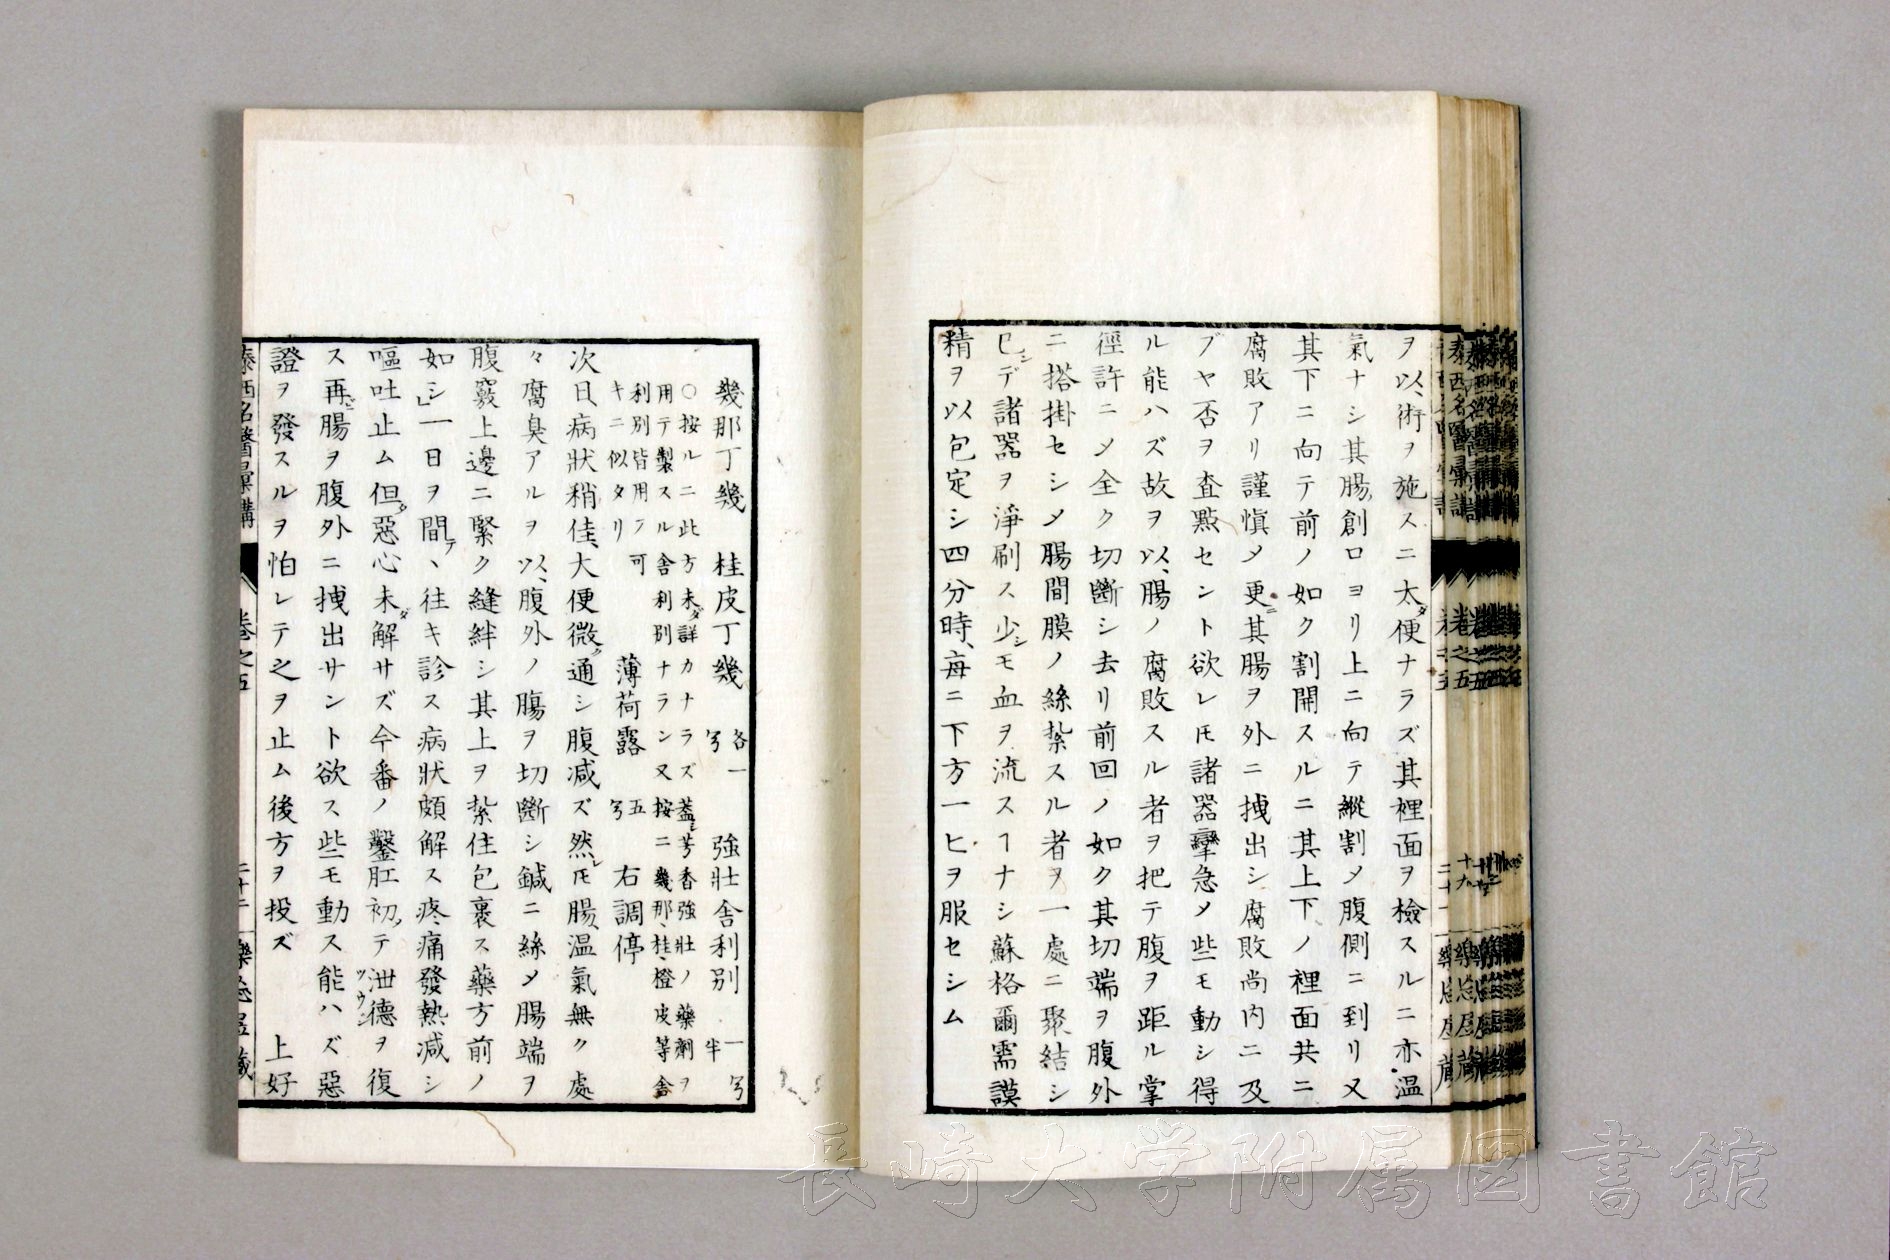 ヲ以術ヲ施スニ太便ナラズ其裡面ヲ檢スルニ亦溫
氣ナシ其腸創口ヨリ上ニ向テ縱割メ腹側ニ到リ又
其下ニ向テ前ノ如ク割開スルニ其上下ノ裡面共ニ
腐敗アリ謹愼メ更ニ其腸ヲ外ニ拽出シ腐敗尚内ニ及
ブヤ否ヲ査點セント欲レ𪜈諸器攣急メ些モ動シ得
ル能ハズ故ヲ以腸ノ腐敗スル者ヲ把テ腹ヲ距ル掌
徑許ニメ全ク切斷シ去リ前回ノ如ク其切端ヲ腹外
ニ搭掛セシメ腸間膜ノ絲紮スル者ヲ一處ニ聚結シ
已デ諸器ヲ淨刷ス少シモ血ヲ流スヿナシ蘇格爾需謨
精ヲ以包定シ四分時每ニ下方一匕ヲ服セシム
幾那丁幾 桂皮丁幾 各一号 強壯舎利別 一号半
○按ルニ此方未ダ詳カナラズ蓋シ芳香強壯ノ藥劑ヲ
用テ製スル舎利別ナラン又按ニ幾那桂橙皮等舎
利別皆用フ可
キニ似タリ
薄荷露 五号 右調停
次日病狀稍佳大便微ク通シ腹減ズ然レ𪜈腸溫氣無ク處
々腐臭アルヲ以腹外ノ腸ヲ切斷シ鍼ニ絲メ腸端ヲ
腹竅上邊ニ緊ク縫絆シ其上ヲ紮住包裹ス藥方前ノ
如シ」一日ヲ間テ、往キ診ス病狀頗解ス疼痛發熱減シ
嘔吐止ム但惡心未ダ解サズ今番ノ鑿肛初テ泄德ヲ復
ス再ビ腸ヲ腹外ニ拽出サント欲ス些モ動ス能ハズ惡
證ヲ發スルヲ怕レテ之ヲ止ム後方ヲ投ズ 上好
泰西名醫彙講 卷之五
長崎大学附属図書館